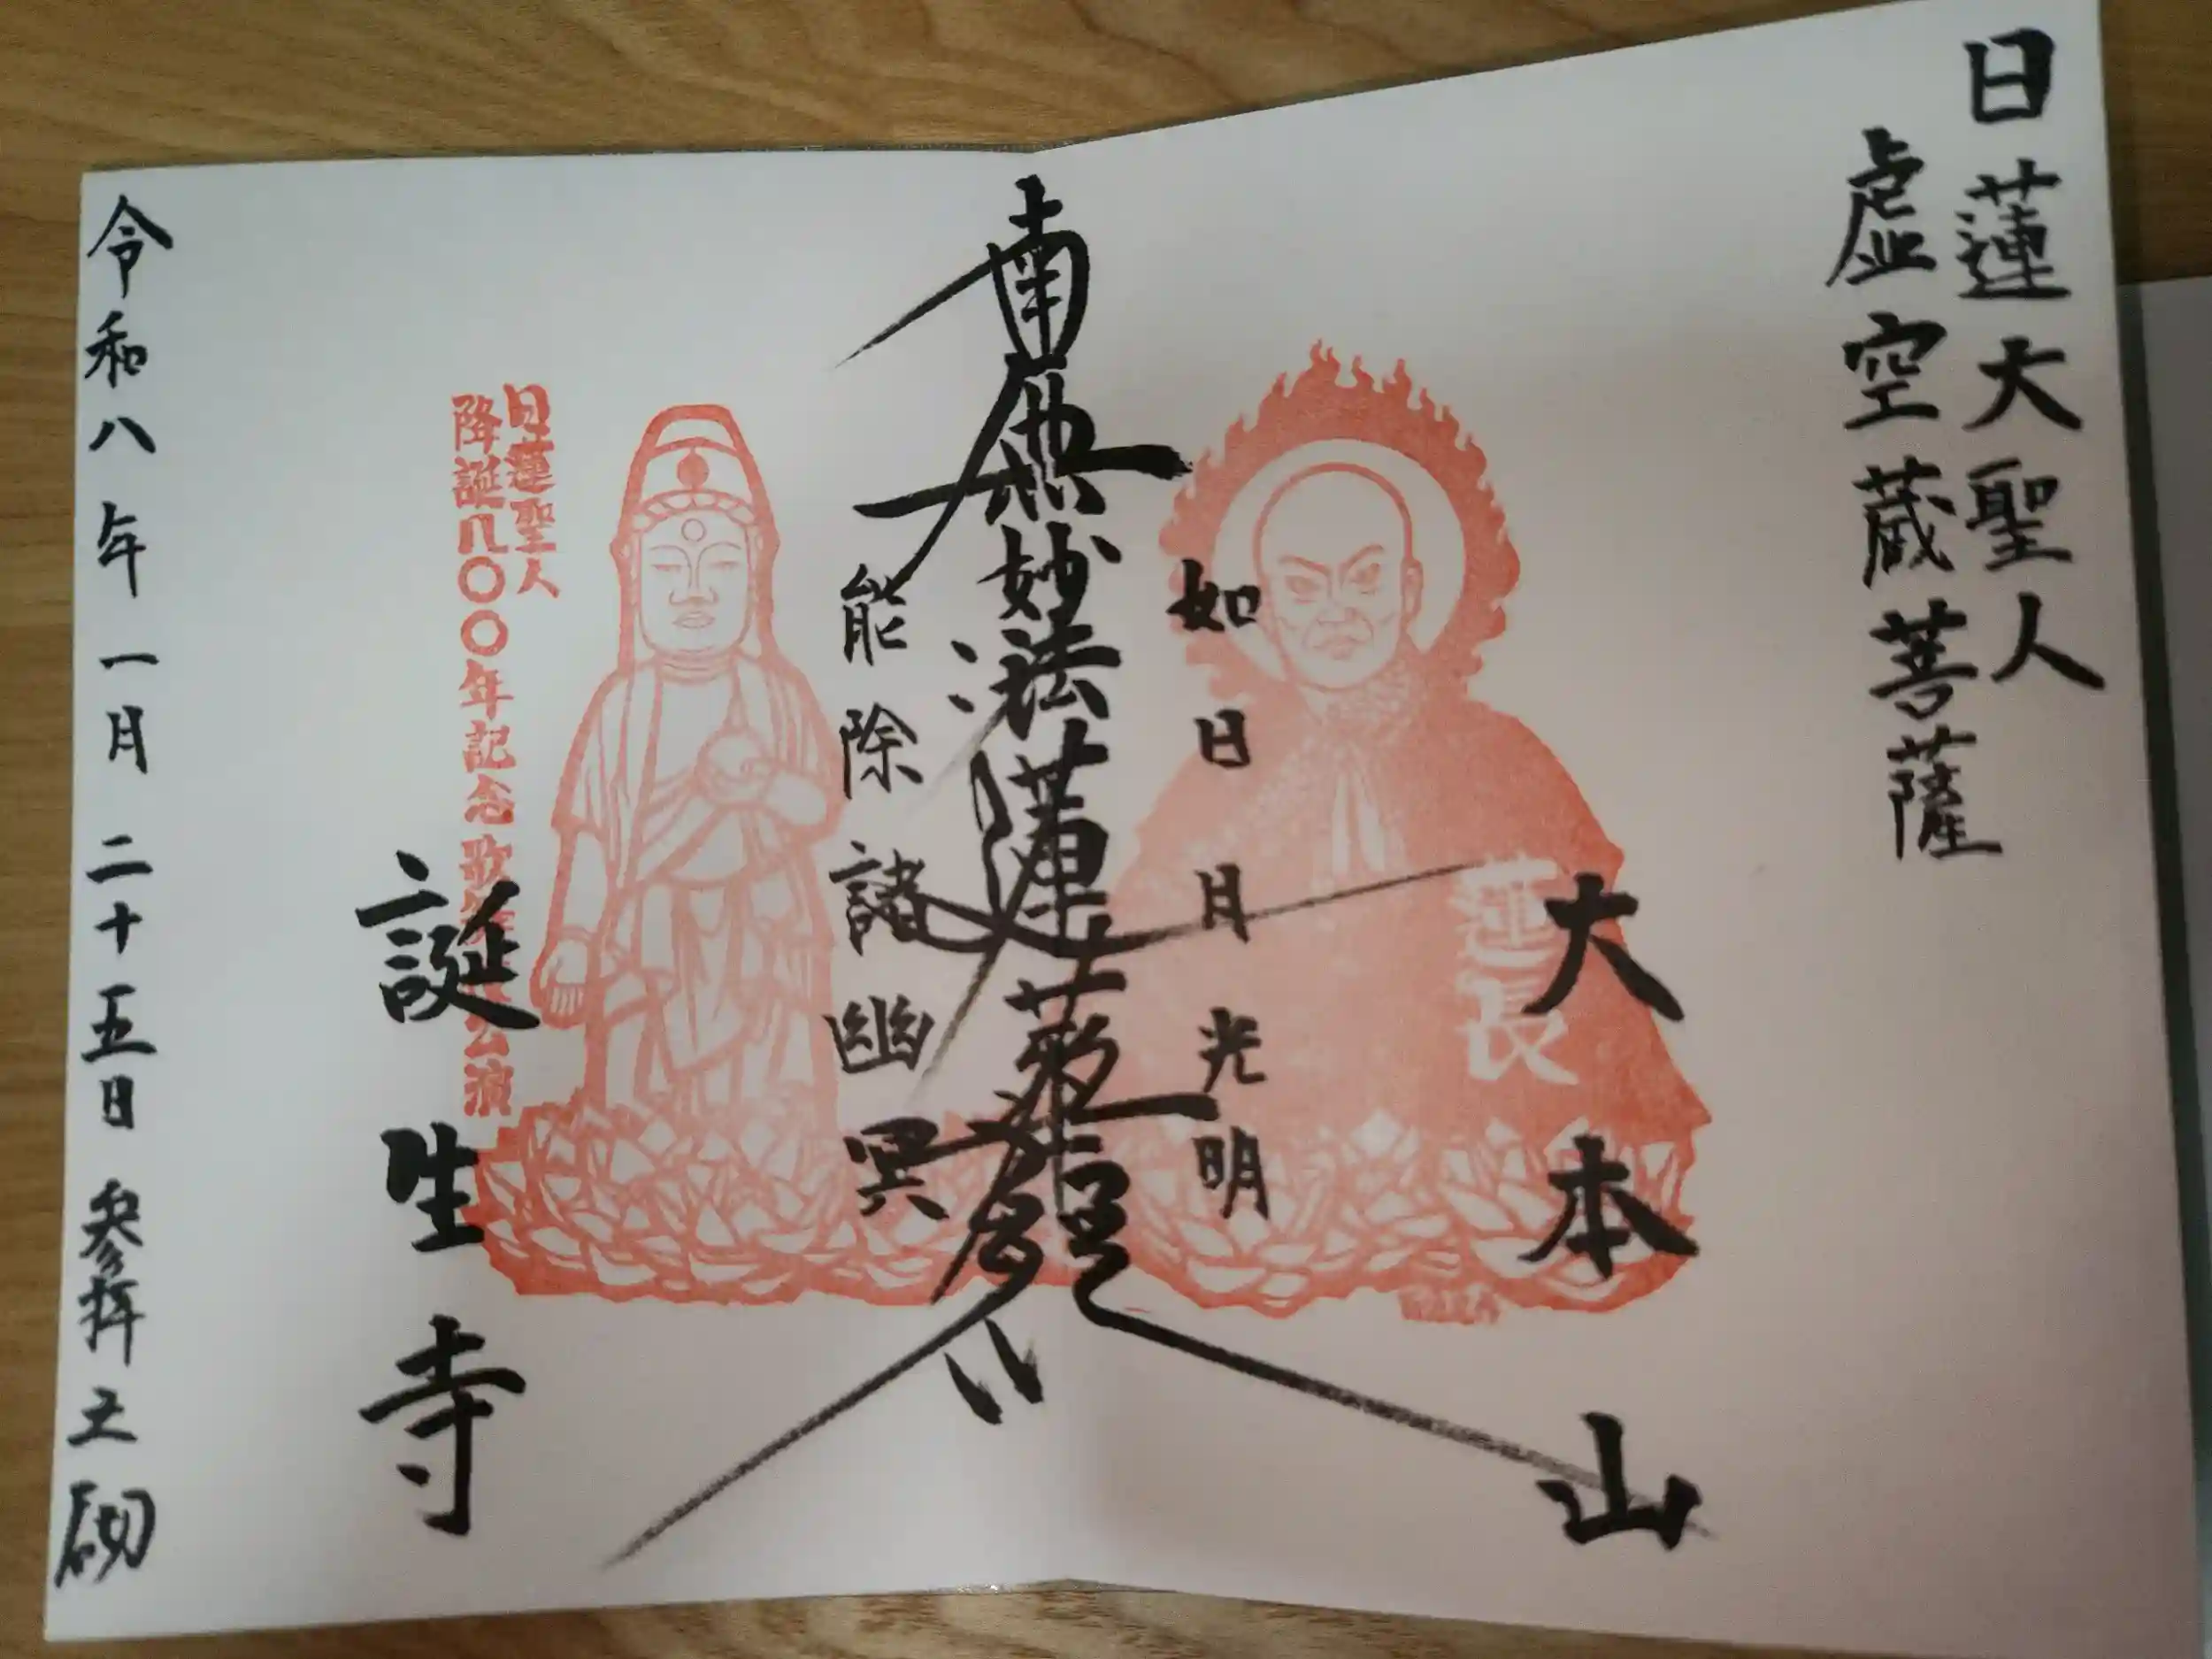 日蓮大聖人
虚空蔵菩薩
大本山
蓮長
如日月光明
南無妙法蓮華経
能除諸幽冥
日蓮聖人
降誕八〇〇年記念歌舞伎公演
誕生寺
令和八年一月二十五日 参拝之砌